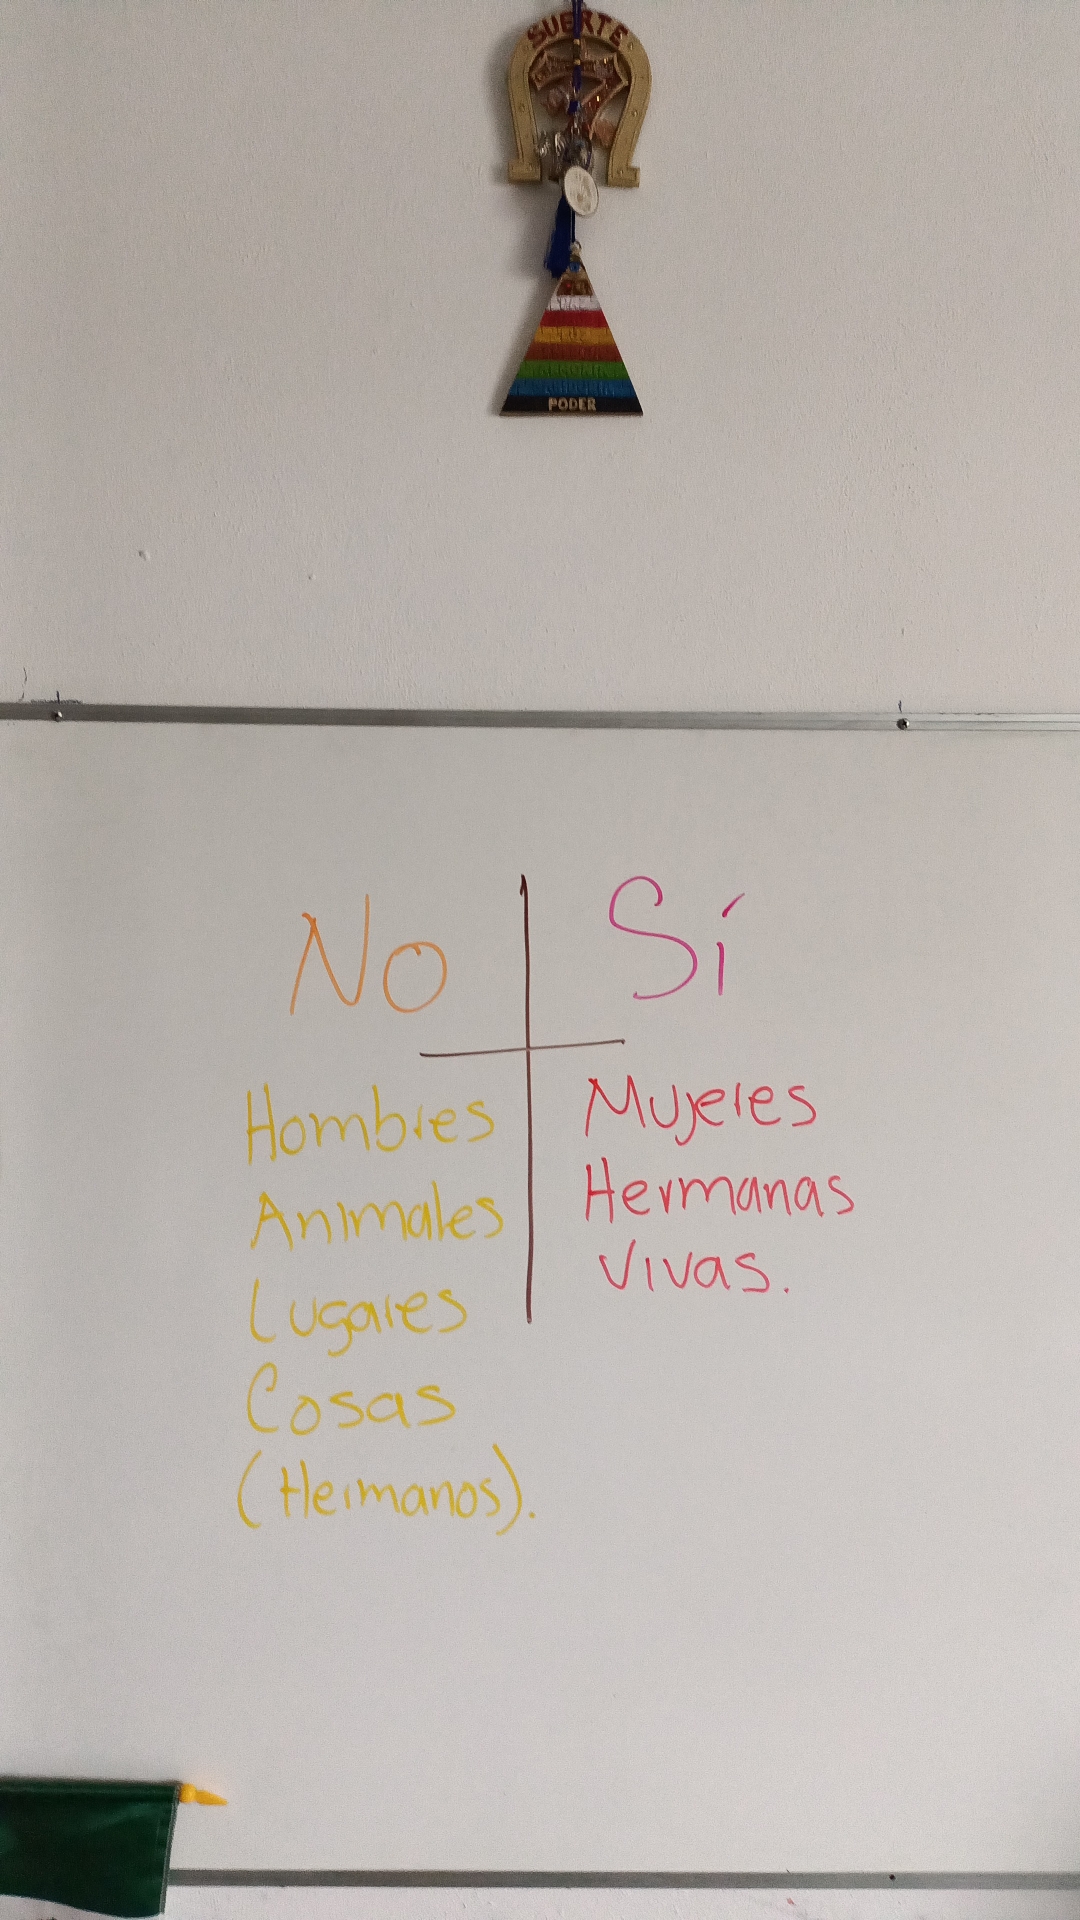 SUERTE
PODER
No
Sí
Hombres
Animales
Lugares
Cosas
(Hermanos).
Mujeres
Hermanas
Vivas.